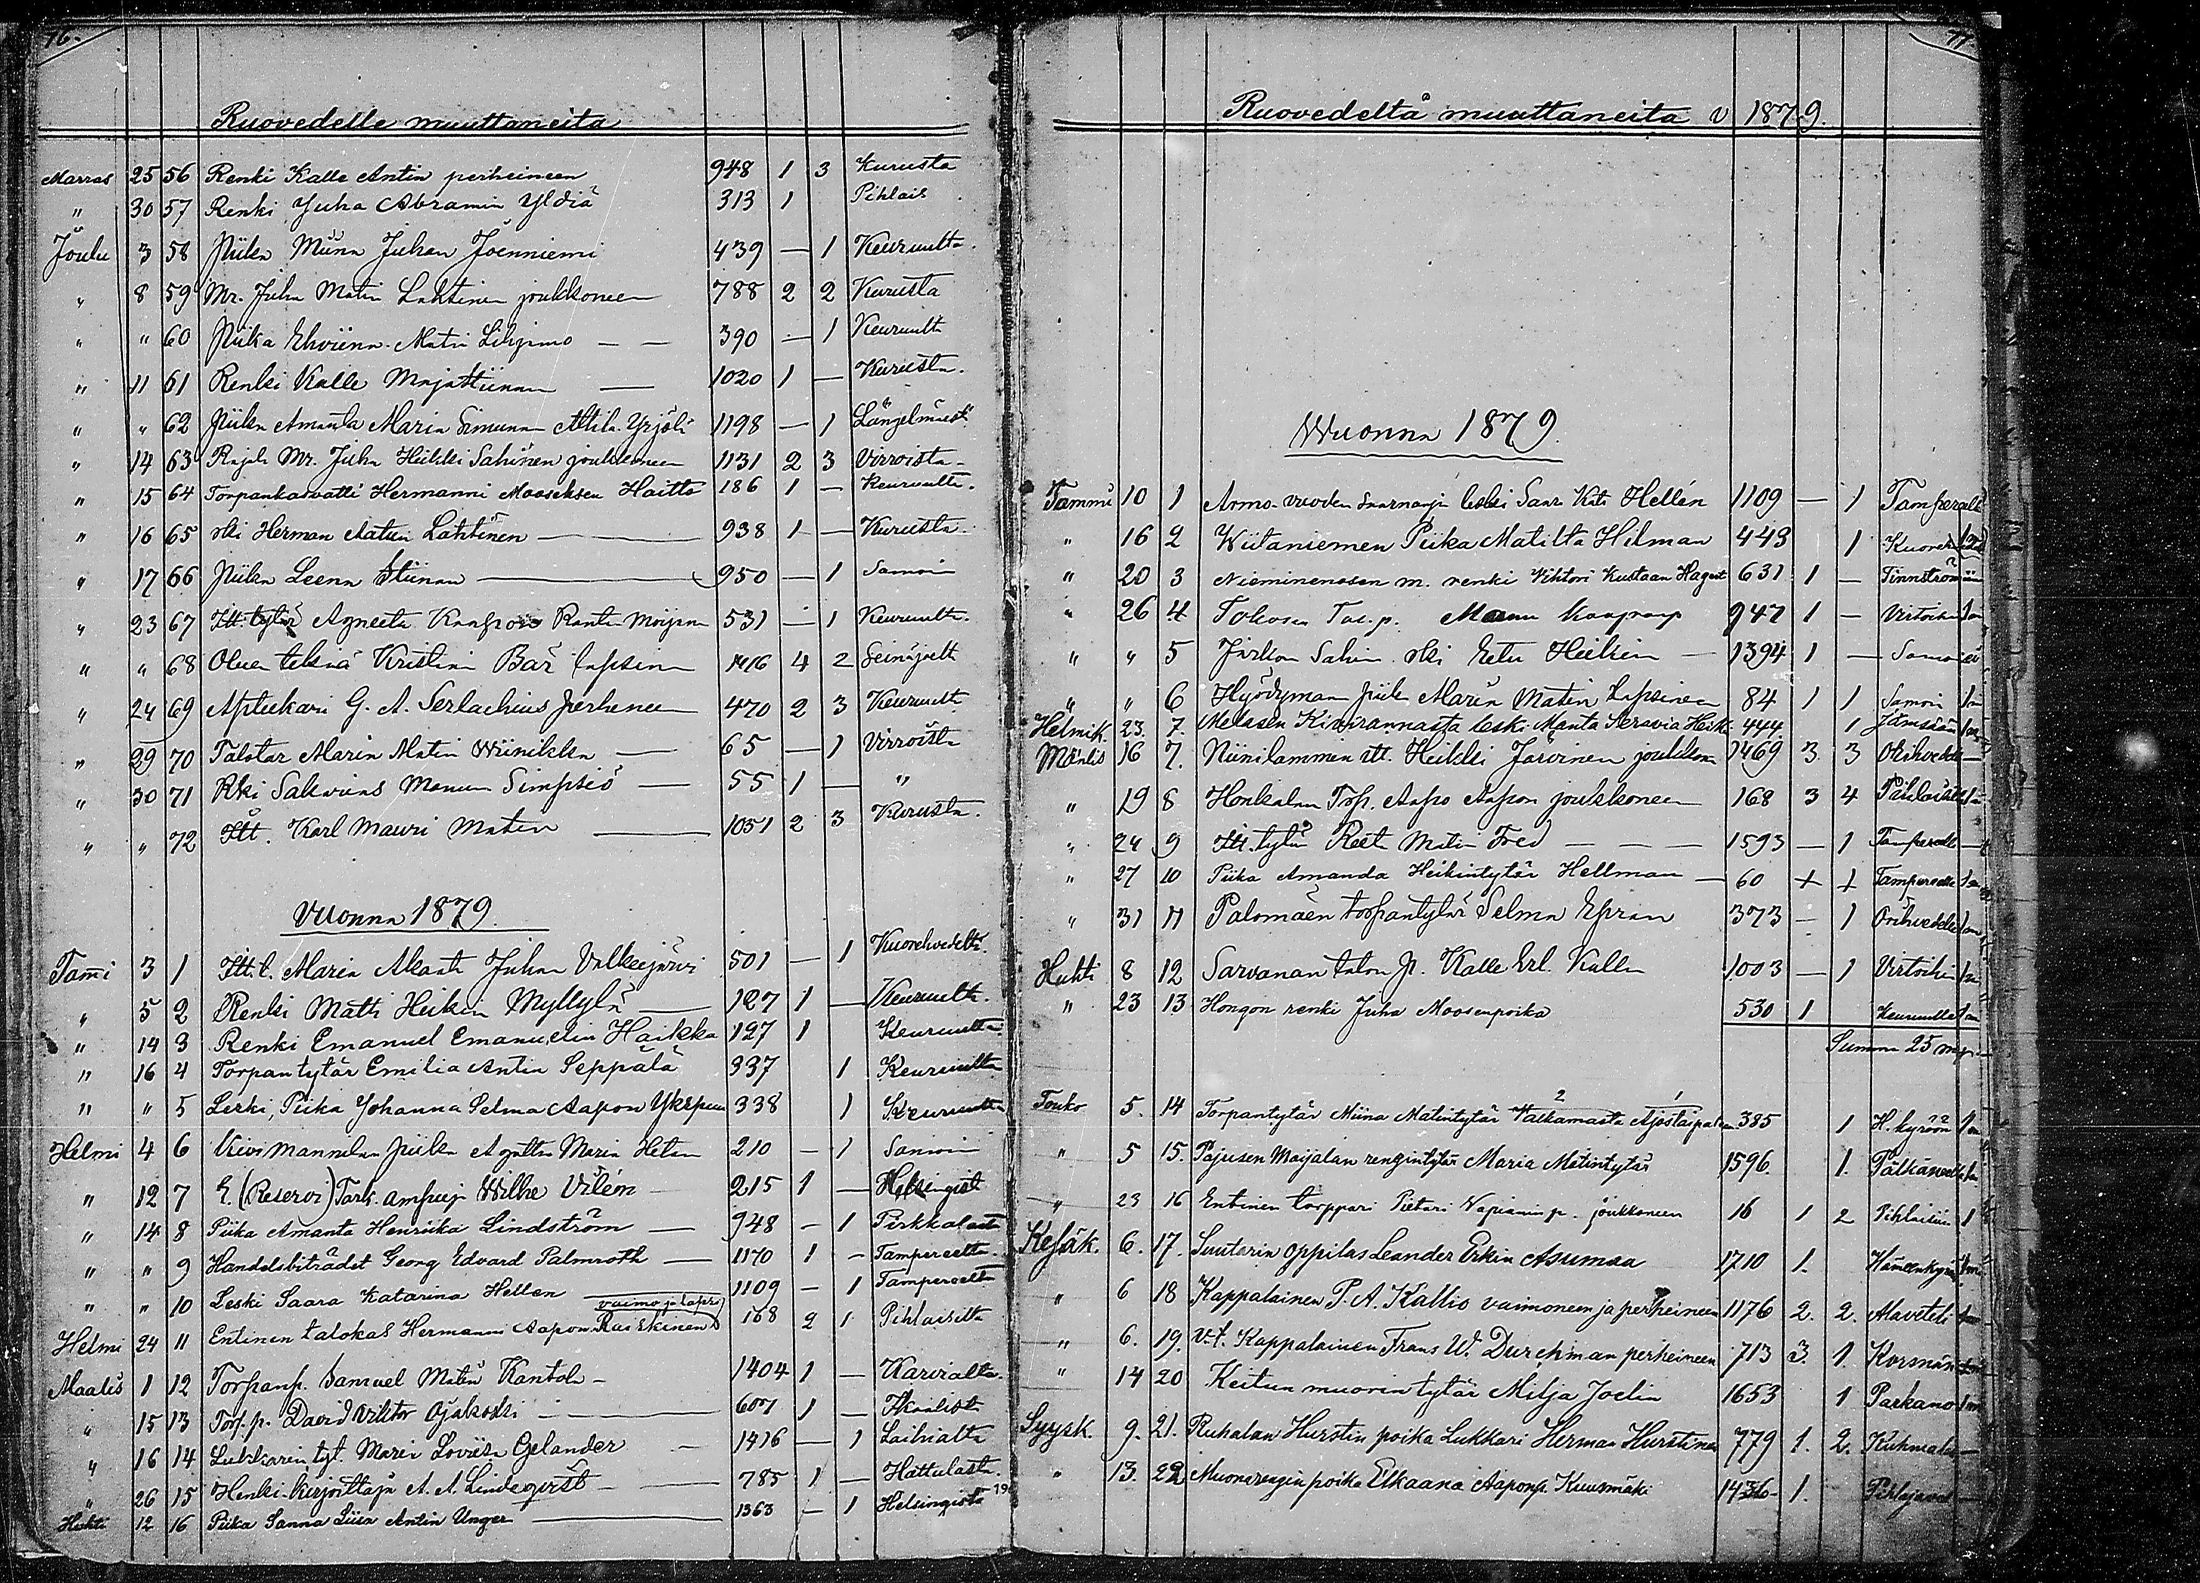 76.
Ruovedelle muuttaneita
Marras 25 56 Renki Kalle Antin perheineen 948 1 3 Kurusta
" 30 57 Renki Juha Abramin Yldiä 313 1 Pihlais
Joulu 3 58 Piika Miina Juhan Joenniemi 439 — 1 Keuruulta.
" 8 59 Mr. Juha Matin Lahtinen joukkoneen 788 2 2 Kurusta
" " 60 Piika Matin — — 390 — 1 Keuruulta
" 11 61 Renki Kalle Majastiinan — 1020 1 — Kurusta.
" " 62 Piika Amanta Maria Simunan Attila Yrjölä 1198 — 1 Längelmäeltä
" 14 63 Mr. Juha Heikki Salinen joukkoneen 1131 2 3 Virroista
" 15 64 Torpankasvatti Hermanni Mooseksen Haitto 186 1 — Keuruulta.
" 16 65 rki Herman Aatun Lahtinen — 938 1 — Kurusta.
" 17 66 Piika Leena Stiinan — 950 — 1 Samoin
" 23 67 Itt. tytär Agneeta Ranta 531 — 1 Keuruulta.
" " 68 Oluen tekiä Kristian Bär lapsineen 1416 4 2 Seinäjoelta
" 24 69 Aptiekari G. A. Serlachius perheneen 470 2 3 Keuruulta
" 29 70 Talotar Maria Matin Wiinikka — 65 — 1 Virroista
" 30 71 Rki Sakarias Manun Simpsiö — 55 1 — "
" " 72 Itt. Karl Mauri Matin — 1051 2 3 Kurusta.
Vuonna 1879.
Tami 3 1 Itt. t. Maria Juhan Valkeejärvi 501 — 1 Kuorehvedeltä.
" 5 2 Renki Matti Heikin Myllylä — 127 1 — Keuruulta.
" 14 3 Renki Emanuel Emanuelin Haikka 127 1 Keuruulta
" 16 4 Torpantytär Emilia Antin Seppälä 337 1 Keuruulta
" " 5 Leski, Piika Johanna Selma Aapon 338 1 Keuruulta
Helmi 4 6 Kivimannilan piika Agatha Maria 210 — 1 Samoin
" 12 7 E. (Reservi) Tark. ampuja Wilhe Vilén — 215 1 — Helsingistä
" 14 8 Piika Amanta Henriika Lindström — 948 — 1 Pirkkalasta
" " 9 Handelsbiträdet Georg Edvard Palmroth — 1170 1 — Tampereelta.
" " 10 Leski Saara Katarina Hellen 1109 — 1 Tampereelta
Helmi 24 11 Entinen talokas Hermanni Aapon Raiskinen vaimo ja lapsi 168 2 1 Pihlaisilta
Maalis 1 12 Torpanp. Samuel Matin Kantola — 1404 1 — Karvialta.
" 15 13 Torp. p. David Viktor Ojakoski — 607 1 — Ikaalista
" 16 14 Lukkarin tyt. Maria Loviisa Gelander — 1416 — 1 Laihialta
" 26 15 Henki-kirjoittaja A. A. Lindeqvist — 785 1 — Hattulasta.
Huhti 12 16 Piika Sanna Liisa Antin Unger — 1363 — 1 Helsingistä
77.
Ruovedeltä muuttaneita v 1879.
Wuonna 1879.
Tammi 10 1 Armo-vuoden saarnaajan leski Saar Kat. Hellén 1109 — 1 Tampereelle
" 16 2 Wiitaniemen Piika Matilta Hilman 443 1
" 20 3 Nieminenosen m. renki Vihtori Kustaan 631 1 —
" 26 4 947 1 — Virtoihin
" " 5 Salin. rki Eetu Heikin — 1394 1 — Samoin
" " 6 Hyödynman piika Maria Matin Lapsineen 84 1 1 Samoin
Helmik. 23. 7. Leski Manta Seravia Heik. 444. 1 Jämsään
Maalis 16 7. Niinilammin itt. Heikki Järvinen joukkon 1469 3 3 Orihvedelle
" 19 8 Honkalan Torp. Aapo Aapon joukkoneen 168 3 4
" 24 9 Itt. tytär Reeta Matin Fred — — — 1593 — 1 Tampereelle
" 27 10 Piika Amanda Heikintytär Hellman — 60 + + Tampereelle
" 31 11 Palomäen torpantytär Selma 373 — 1 Orihvedelle
Huhti 8 12 Sarvanan talon p. Kalle Erl. Kallen 1003 — 1 Virtoihin
" 23 13 Hongon renki Juha Moosenpoika 530 1 Keuruulle
Summa 25
Touko 5. 14 Torpantytär Miina Matintytär Valkamasta 385 1 H. kyröön
" 5 15. Pajusen Maijalan rengintytär Maria Matintytär 1596. 1.
" 23 16 Entinen torppari Pietari p. joukkoneen 16 1 2
Kesäk. 6. 17. Suutarin oppilas Leander Erkin Asumaa 1710 1.
" 6 18 Kappalainen P. A. Kallio vaimoneen ja perheineen 1176 2. 2. Alaveteli
" 6. 19. V.t. Kappalainen Frans W. Durchman perheineen 713 3. 1.
" 14 20 Keitun muorin tytär Milja Joelin 1653 1 Parkano
Syysk. 9. 21. Ruhalan Hurstin poika Lukkari Herman Hurstinen 779 1. 2.
" 13. 22 Muonarengin poika Elkaana Aaponp. Kuusmäki 1436 1.